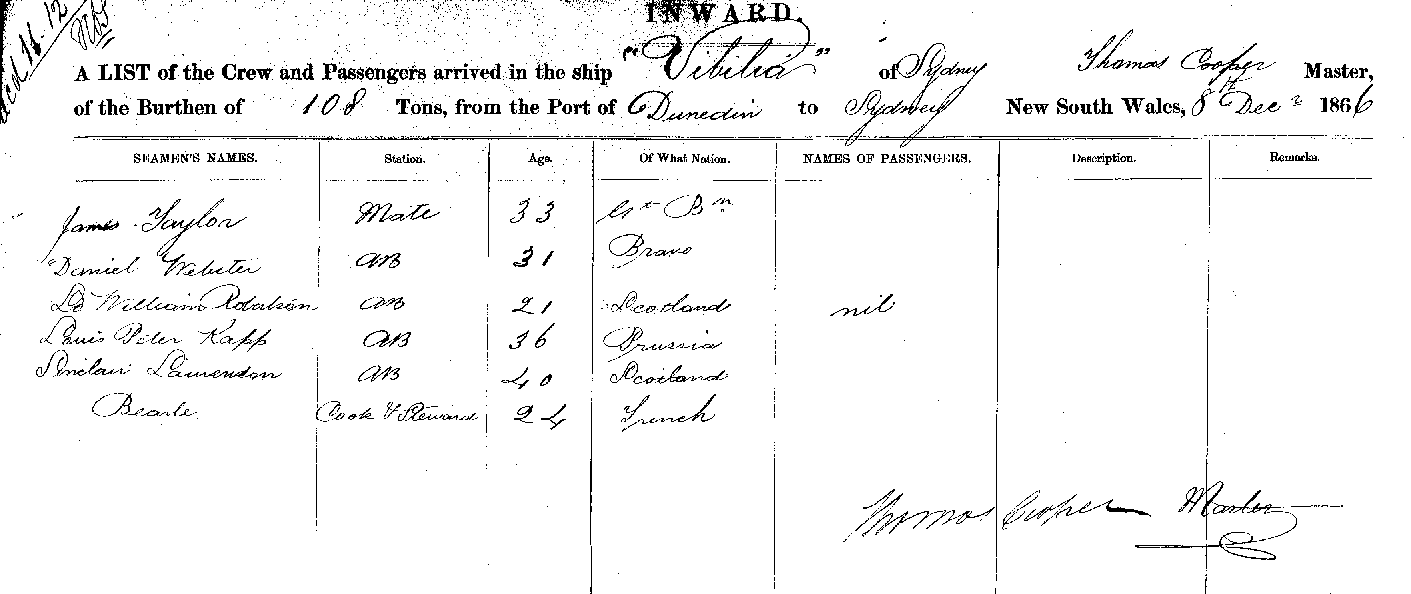 INWARD.
A LIST of the Crew and Passengers arrived in the ship "Vibilia" of Sydney Thomas Cooper Master,
of the Burthen of 108 Tons, from the Port of Dunedin to Sydney New South Wales, 8th Decr 1866
SEAMEN'S NAMES. Station. Age. Of What Nation. NAMES OF PASSENGERS. Description. Remarks.
James Taylor Mate 33 Gt Bn
Daniel Webster AB 31 Bravo
William Robertson AB 21 Scotland nil
Louis Peter Kapp AB 36 Prussia
Sinclair AB 40 Scotland
Bearle Cook & Steward 24 French
Thomas Cooper Master